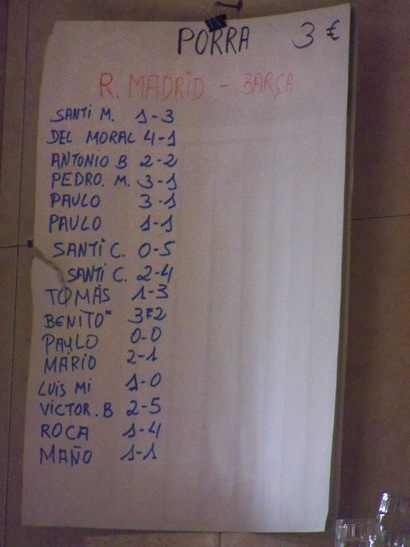 PORRA 3 €
R. MADRID - BARÇA
SANTI M. 1-3
DEL MORAL 4-1
ANTONIO B 2-2
PEDRO. M. 3-1
PAULO 3-1
PAULO 1-1
SANTI C. 0-5
SANTI C. 2-4
TOMÁS 1-3
BENITO" 3-2
PAULO 0-0
MARIO 2-1
LUIS MI 1-0
VICTOR.B 2-5
ROCA 1-4
MAÑO 1-1